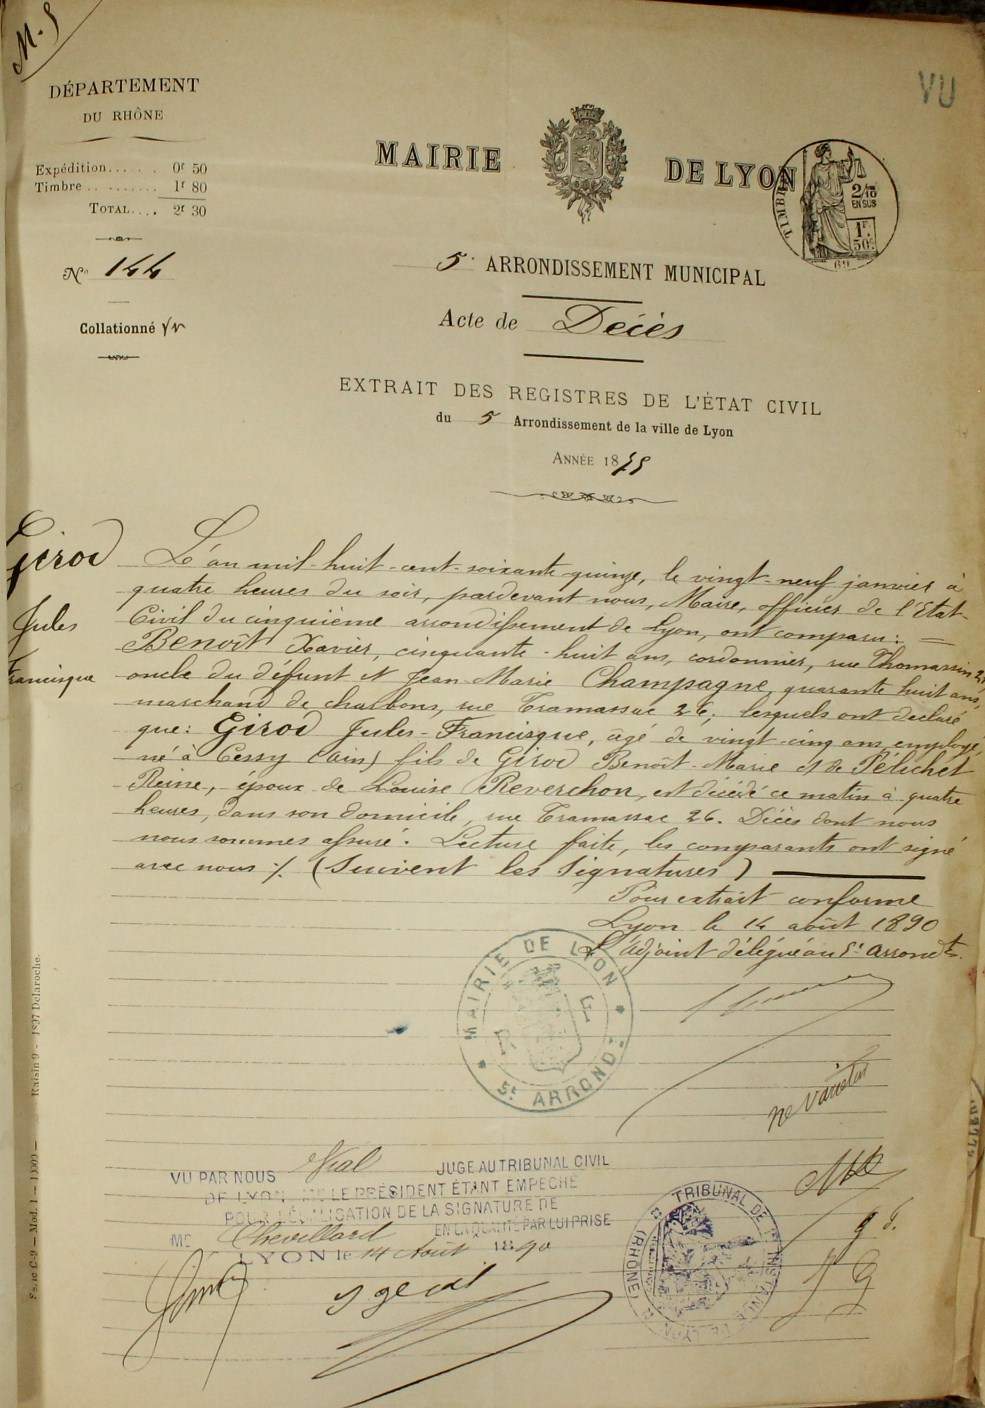 M. S
VU
DÉPARTEMENT
DU RHÔNE
Expédition...... 0f 50
Timbre........... 1f 80
TOTAL.... 2f 30
No 144
Collationné
MAIRIE DE LYON
TIMBRE
2/10
EN SUS
1F
50c
5e ARRONDISSEMENT MUNICIPAL
Acte de Décès
EXTRAIT DES REGISTRES DE L'ÉTAT CIVIL
du 5 Arrondissement de la ville de Lyon
ANNÉE 1875
Girod
Jules
Francisque
L'an mil-huit-cent-soixante-quinze, le vingt-neuf janvier à
quatre heures du soir, pardevant nous, Maire, officier de l'Etat-
Civil du cinquième arrondissement de Lyon, ont comparu: =
Benoît Xavier, cinquante-huit ans, cordonnier, rue Thomassin
oncle du défunt et Jean-Marie Champagne, quarante huit ans,
marchand de charbons, rue Tramassac 26, lesquels ont déclaré
que: Girod Jules-Francisque, âgé de vingt-cinq ans, employé,
né à Cessy (Ain) fils de Girod Benoît-Marie et de Pélichet
Reine, époux de Louise Reverchon, est décédé ce matin à quatre
heures, dans son domicile, rue Tramassac 26. Décès dont nous
nous sommes assuré. Lecture faite, les comparants ont signé
avec nous ·/. (Suivent les Signatures)
Pour extrait conforme
Lyon le 14 août 1890
L'adjoint délégué au 5e arrondt.
MAIRIE DE LYON
R F
5e ARROND.
ne varietur
VU PAR NOUS Vial JUGE AU TRIBUNAL CIVIL
DE LYON, MR LE PRÉSIDENT ÉTANT EMPÊCHÉ
POUR LÉGALISATION DE LA SIGNATURE DE
MR Chevillard EN LA QUALITÉ PAR LUI PRISE
LYON le 14 Août 1890
TRIBUNAL DE 1re INSTANCE DE LYON (RHONE)
Raisin 9 - 1897 Delaroche.